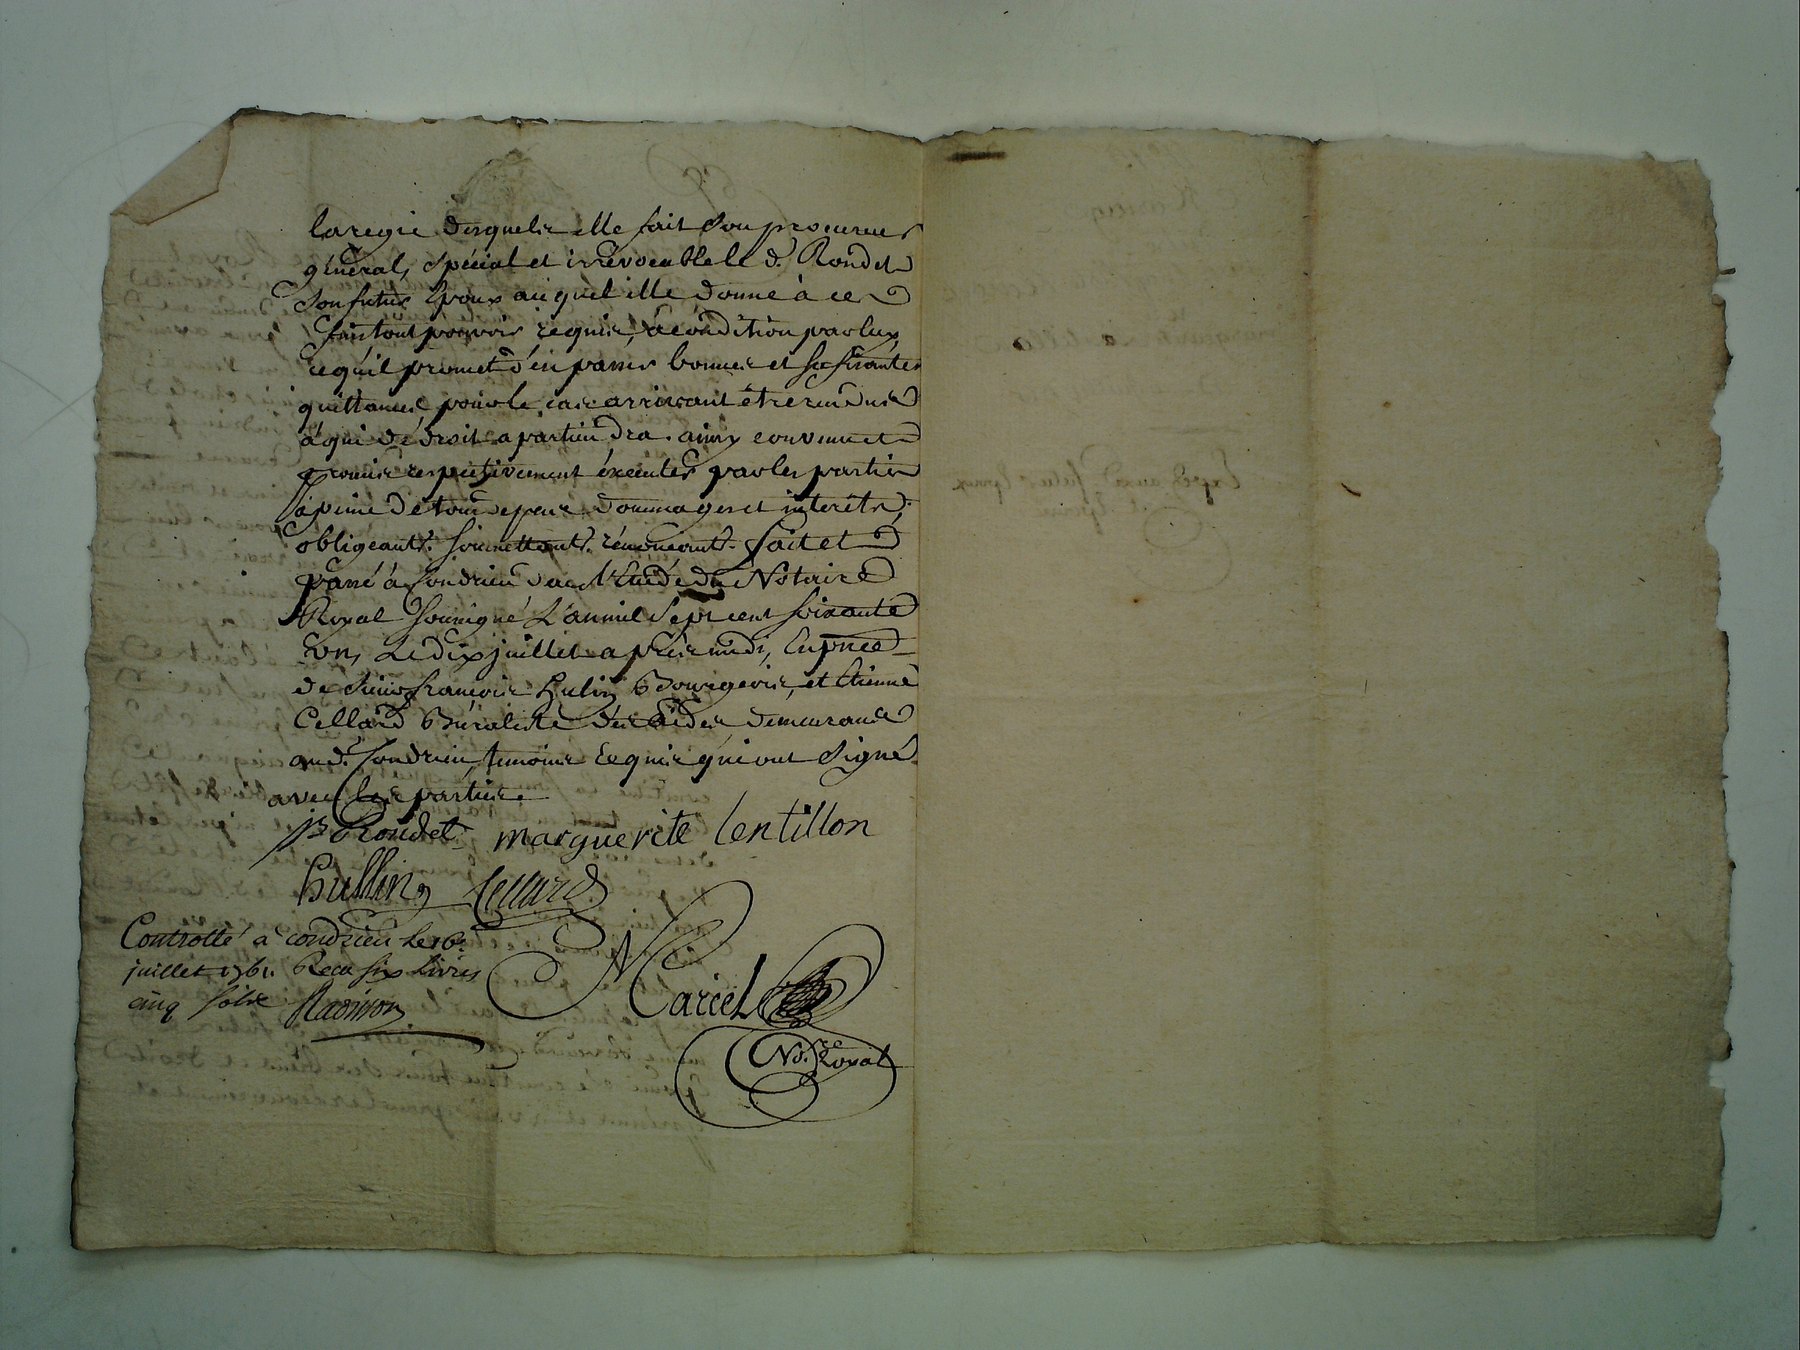 la regie desquels elle fait son procureur
général, spécial et irrévocable le d. Rondet
son futur Epoux auquel elle donne à ces
fins tout pouvoir requis, à condition par luy
cequ'il promet d'en passer bonnes et sufisantes
quittances pour le cas arrivant être rendues
à qui de droit apartiendra. ainsy convenu et
promis respectivement éxécuter par les parties
à peine de tous depens dommages et interets;
obligeants. soumettants. rénonceants. fait et
passé à Condrieu dans l'Etude du Notaire
Royal soussigné L'an mil sept cent soixante
un, Le dix juillet après midi, En pñce
de sieurs françois Hulin Bourgeois, et Etienne
Cellard Buraliste des aides, demeurants
aud. Condrieu, temoins requis qui ont signé
avec les parties.
Rondet marguerite lentillon
hullin Cellard.
Controllé a condrieu le 16.
juillet 1761. Recu six livres
cinq sols
Marcel
No.re Royal